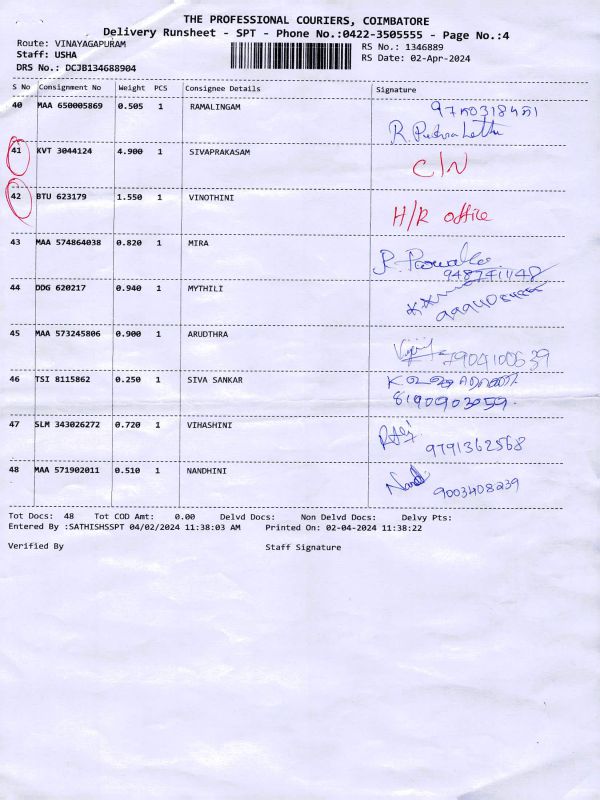 THE PROFESSIONAL COURIERS, COIMBATORE
Delivery Runsheet - SPT - Phone No.:0422-3505555 - Page No.:4
Route: VINAYAGAPURAM
RS No.: 1346889
Staff: USHA
RS Date: 02-Apr-2024
DRS No.: DCJB134688904
S No Consignment No Weight PCS Consignee Details Signature
40 MAA 650005869 0.505 1 RAMALINGAM
41 KVT 3044124 4.900 1 SIVAPRAKASAM C/N
42 BTU 623179 1.550 1 VINOTHINI H/R office
43 MAA 574864038 0.820 1 MIRA
44 DDG 620217 0.940 1 MYTHILI
45 MAA 573245806 0.900 1 ARUDTHRA 7904100639
46 TSI 8115862 0.250 1 SIVA SANKAR
8190903059.
47 SLM 343026272 0.720 1 VIHASHINI
9791362568
48 MAA 571902011 0.510 1 NANDHINI
9003408239
Tot Docs: 48 Tot COD Amt: 0.00 Delvd Docs: Non Delvd Docs: Delvy Pts:
Entered By :SATHISHSSPT 04/02/2024 11:38:03 AM Printed On: 02-04-2024 11:38:22
Verified By Staff Signature